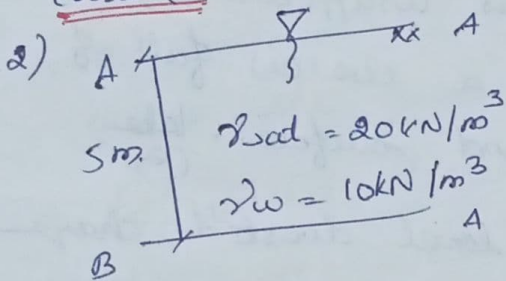 2)
A A
5m. γsat = 20kN/m³
γw = 10kN/m³
B A